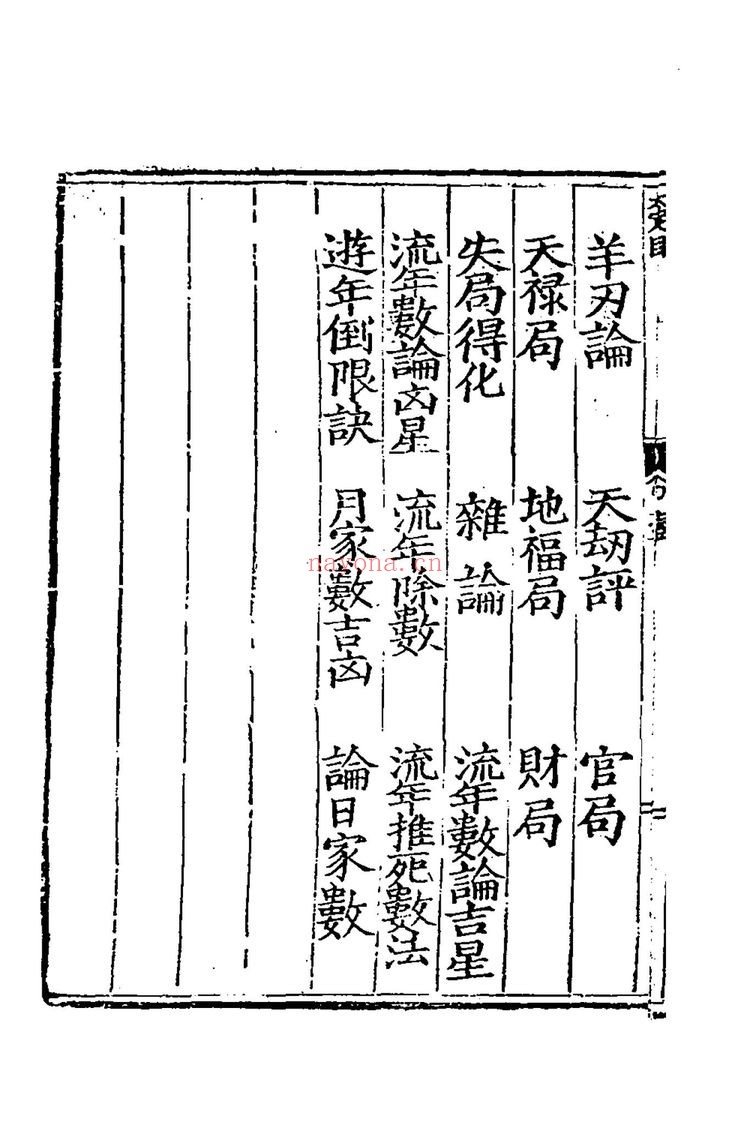 羊刃論　天刧評　官局
天禄局　地福局　財局
失局得化　雜論　流年數論吉星
流年數論凶星　流年除數　流年推死數法
遊年倒限訣　月家數吉凶　論日家數
nayona.cn